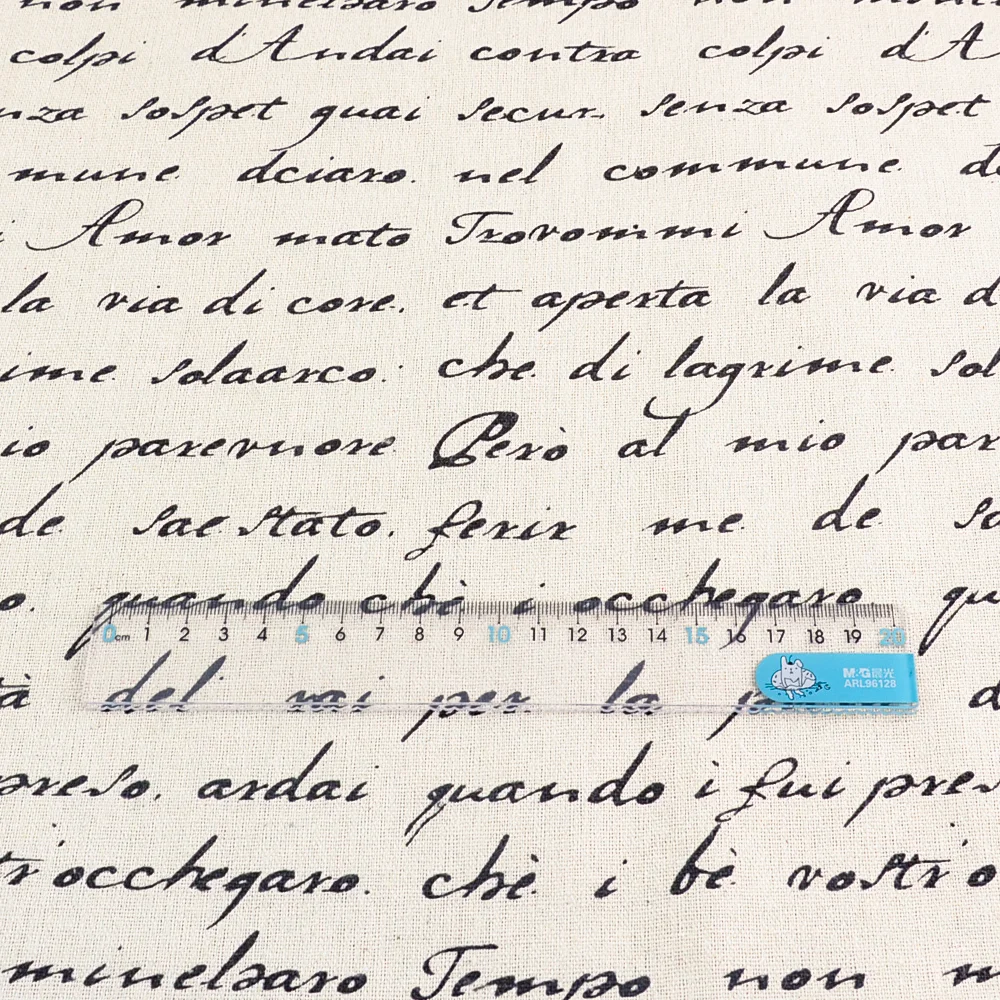 colpi d'Andai contra colpi d'A
nza sospet guai secur. senza sospet
mune dciaro. nel commune
i Amor mato Trovommi Amor
la via di core. et aperta la via d
ime solaarco: che di lagrime sol
io parevnore Però al mio par
de saestato. ferir me de sa
o. quando chè i occhegaro qu
0cm 1 2 3 4 5 6 7 8 9 10 11 12 13 14 15 16 17 18 19 20
M&G晨光
ARL96128
tà del rai per la d
preso. ardai quando i fui pres
tr'occhegaro. chè i bè vostr'o
minelsaro Tempo non m